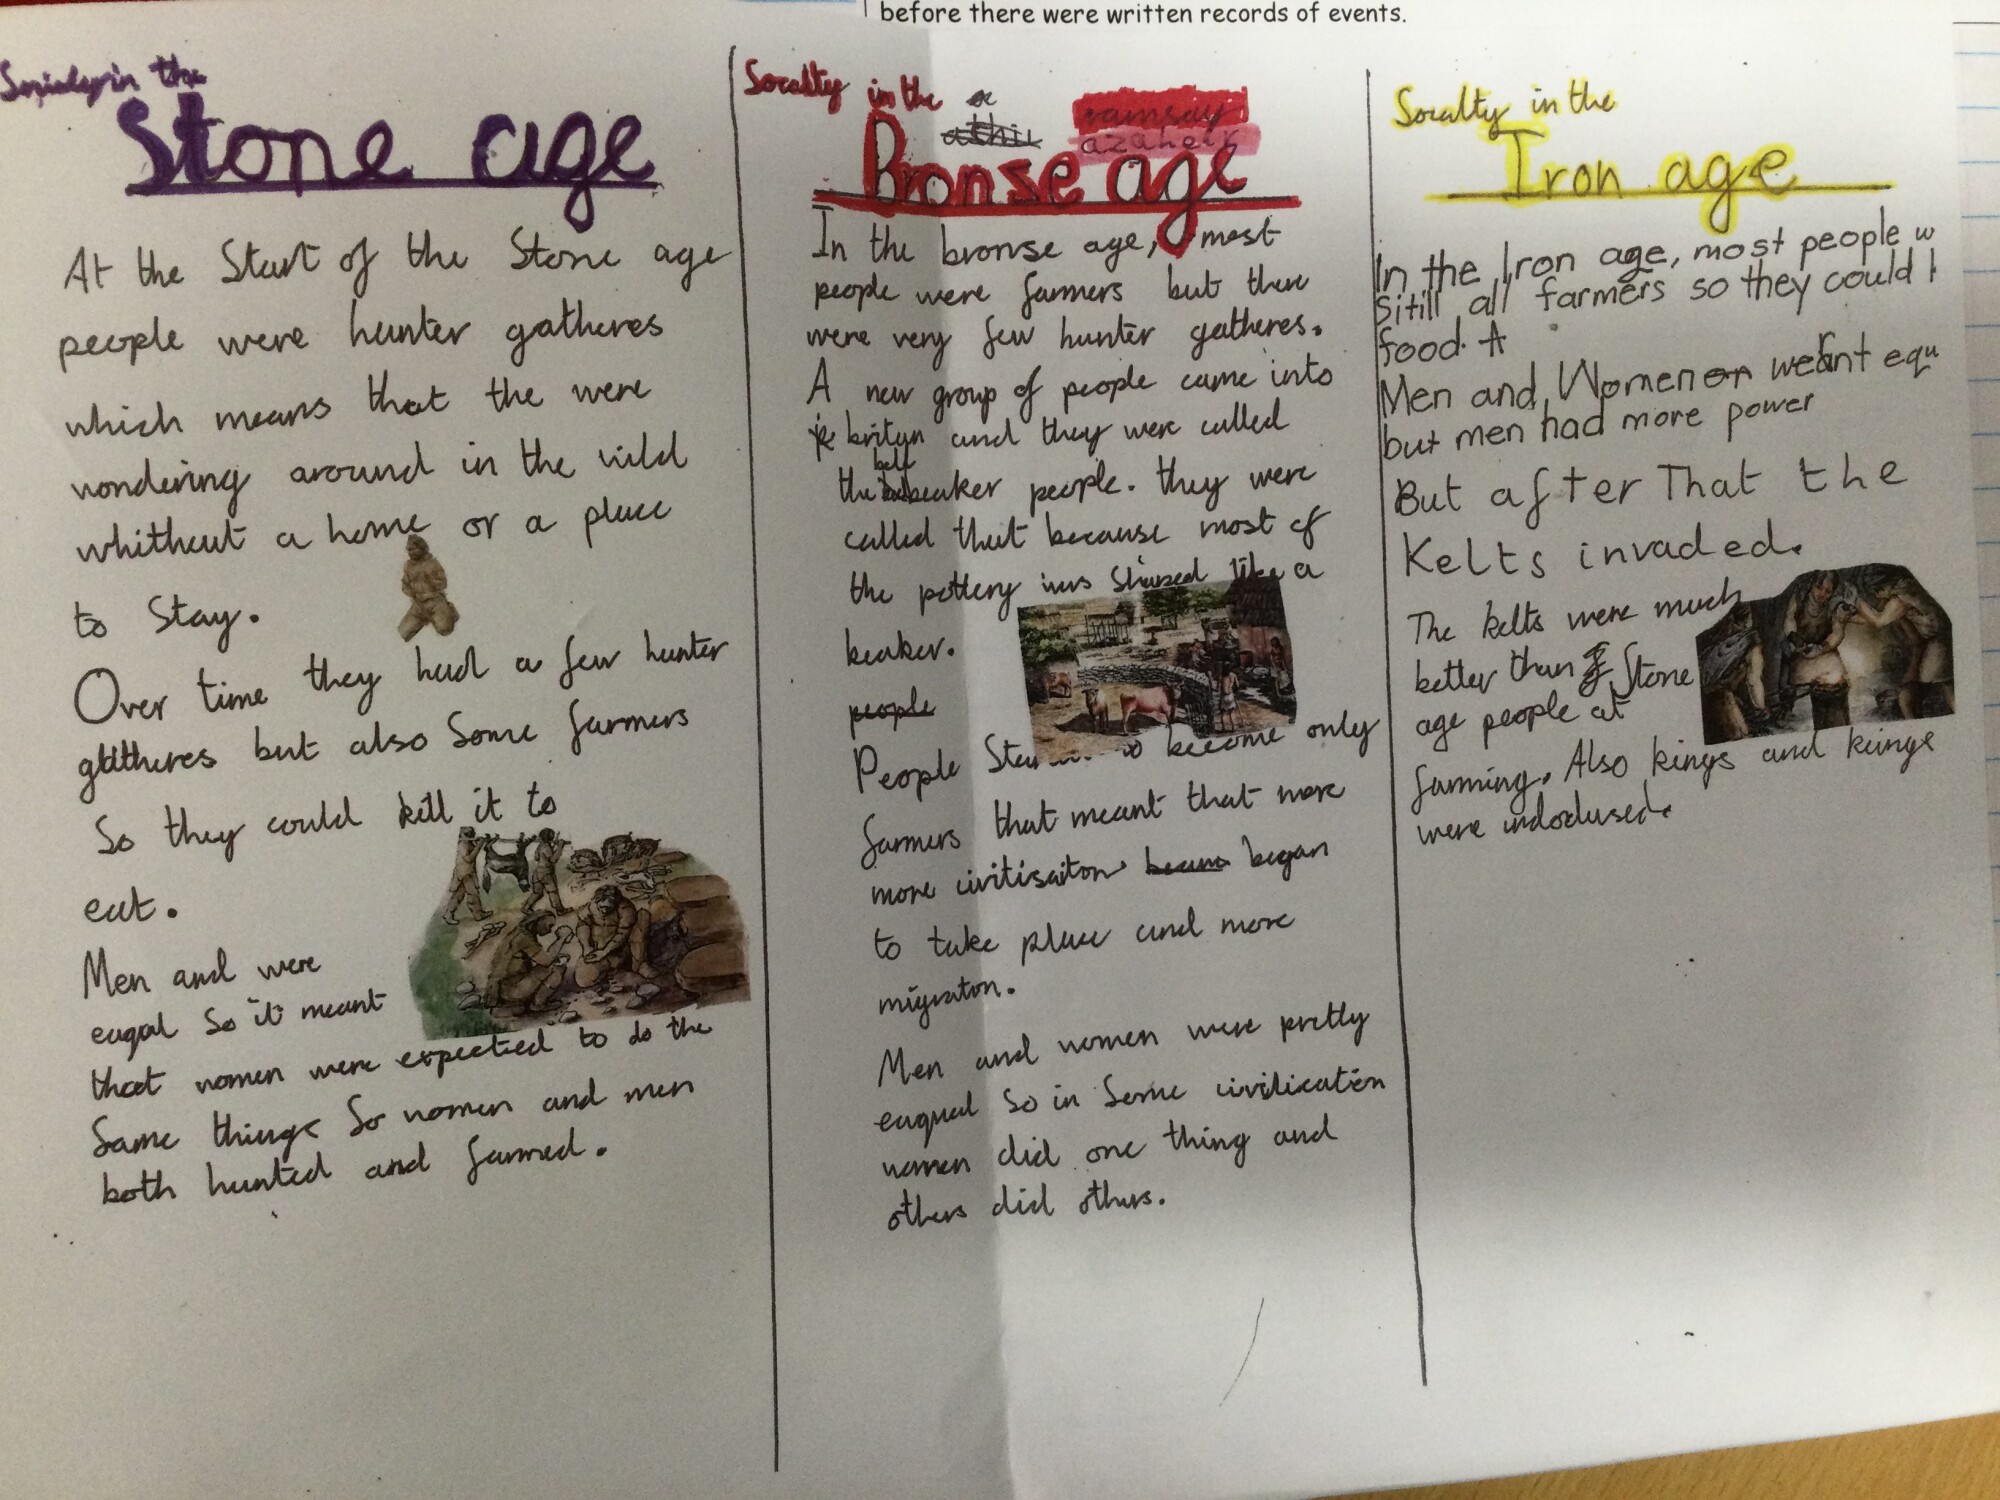 before there were written records of events.
in the
Stone age
At the Start of the Stone age
people were hunter gatheres
which means that the were
wondering around in the wild
whithout a home or a place
to Stay.
Over time they had a few hunter
gutheres but also Some farmers
So they could kill it to
eat.
Men and were
eaqal So it meant
that women were expected to do the
Same things So women and men
both hunted and farmed.
Socalty in the
ramsay
azaheir
Bronse age
In the bronse age, most
people were farmers but there
were very few hunter gatheres.
A new group of people came into
britan and they were called
bell
the beaker people. they were
called that because most of
the pottery was Shaped like a
beaker.
people
People become only
farmers that meant that more
more civitisaiton began
to take place and more
migraton.
Men and women were pretty
eaqual So in Some civilication
women did one thing and
others did others.
Socalty in the
Iron age
In the Iron age, most people w
Sitill all farmers so they could
food.
Men and Women weant equ
but men had more power
But after That the
Kelts invaded.
The kelts were much
better than Stone
age people at
farming. Also kings and kings
were indodused.